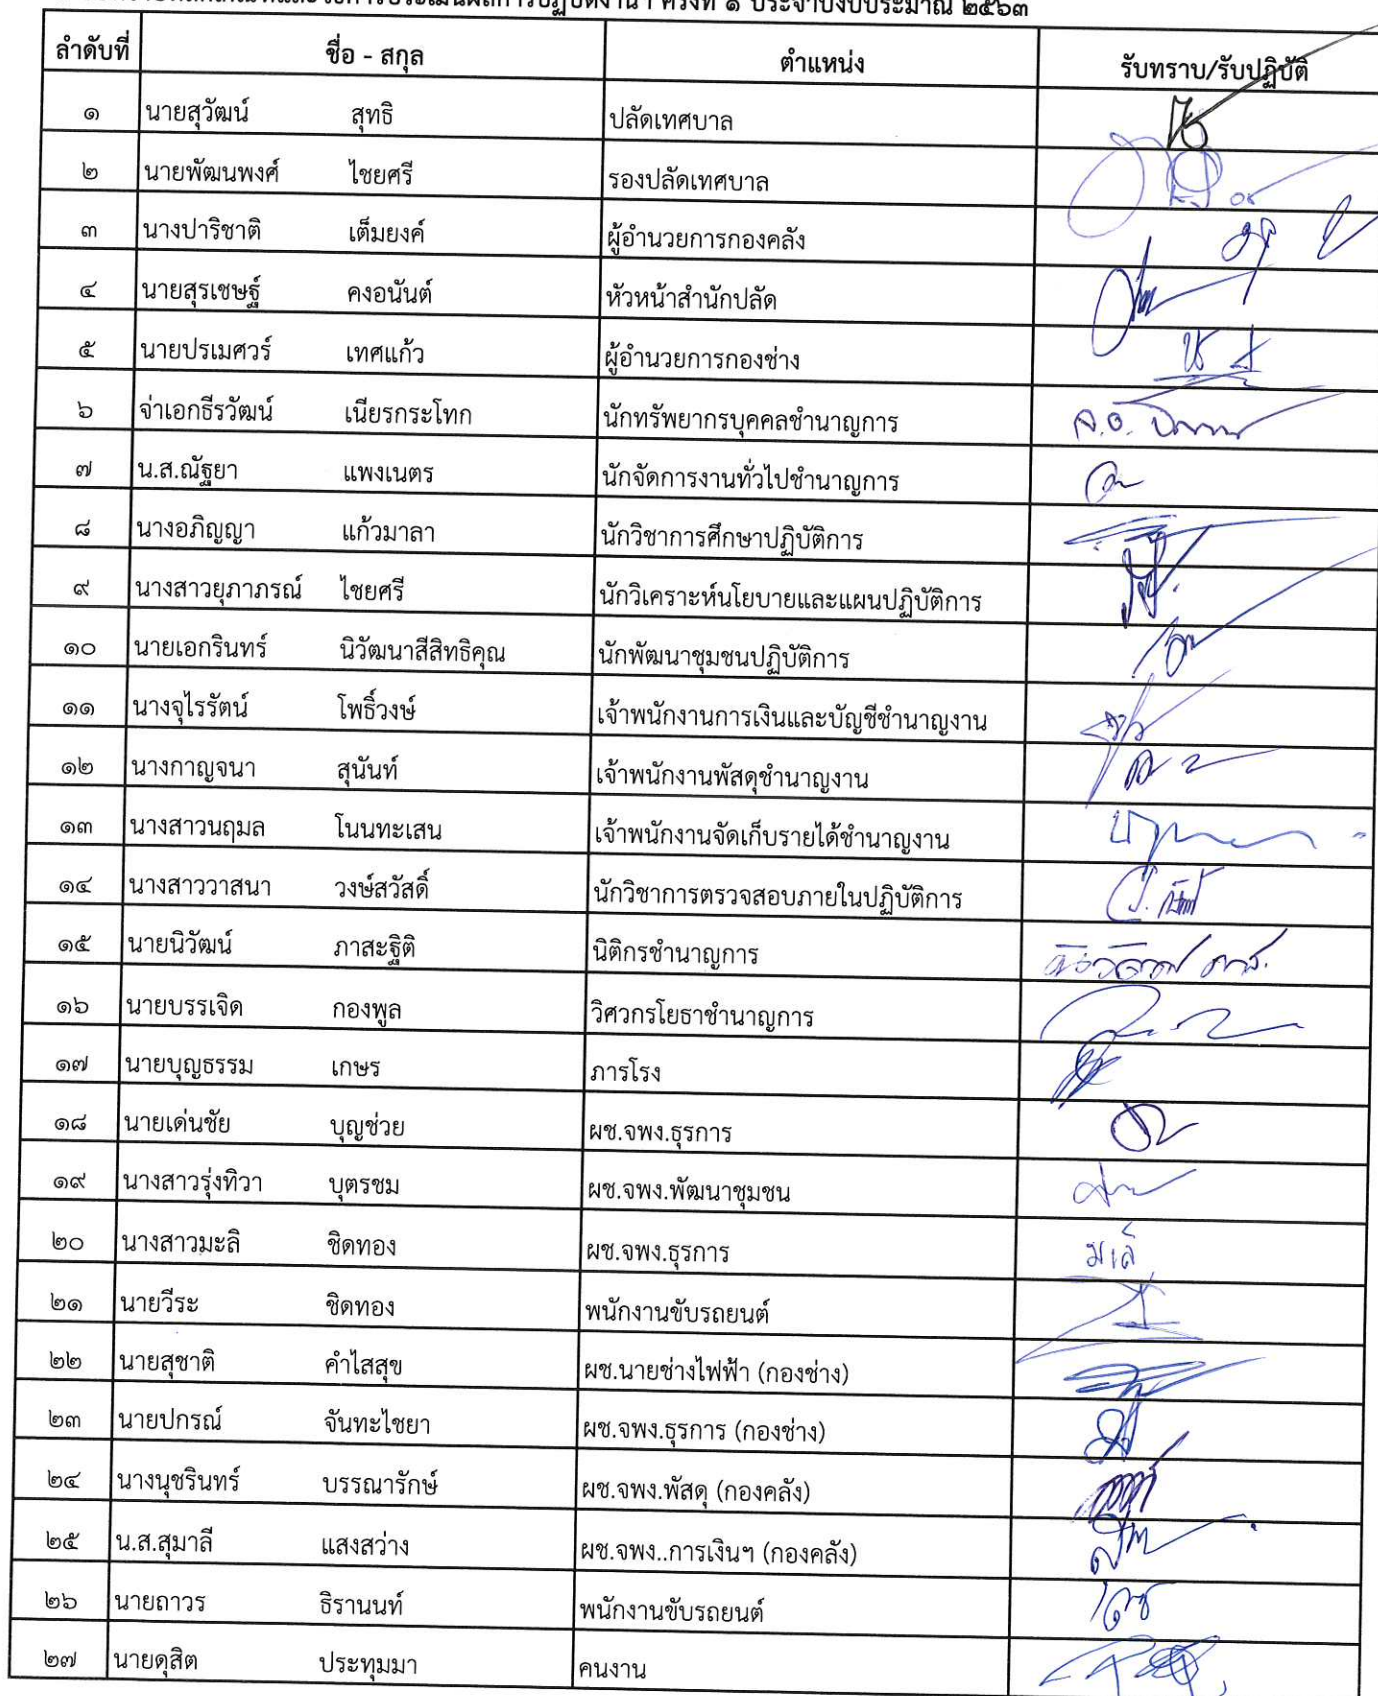 ครั้งที่ ๑ ประจำปีงบประมาณ ๒๕๖๓
ลำดับที่ ชื่อ - สกุล ตำแหน่ง รับทราบ/รับปฏิบัติ
๑ นายสุวัฒน์ สุทธิ ปลัดเทศบาล
๒ นายพัฒนพงศ์ ไชยศรี รองปลัดเทศบาล
๓ นางปาริชาติ เต็มยงค์ ผู้อำนวยการกองคลัง
๔ นายสุรเชษฐ์ คงอนันต์ หัวหน้าสำนักปลัด
๕ นายปรเมศวร์ เทศแก้ว ผู้อำนวยการกองช่าง
๖ จ่าเอกธีรวัฒน์ เนียรกระโทก นักทรัพยากรบุคคลชำนาญการ
๗ น.ส.ณัฐยา แพงเนตร นักจัดการงานทั่วไปชำนาญการ
๘ นางอภิญญา แก้วมาลา นักวิชาการศึกษาปฏิบัติการ
๙ นางสาวยุภาภรณ์ ไชยศรี นักวิเคราะห์นโยบายและแผนปฏิบัติการ
๑๐ นายเอกรินทร์ นิวัฒนาสีสิทธิคุณ นักพัฒนาชุมชนปฏิบัติการ
๑๑ นางจุไรรัตน์ โพธิ์วงษ์ เจ้าพนักงานการเงินและบัญชีชำนาญงาน
๑๒ นางกาญจนา สุนันท์ เจ้าพนักงานพัสดุชำนาญงาน
๑๓ นางสาวนฤมล โนนทะเสน เจ้าพนักงานจัดเก็บรายได้ชำนาญงาน
๑๔ นางสาววาสนา วงษ์สวัสดิ์ นักวิชาการตรวจสอบภายในปฏิบัติการ
๑๕ นายนิวัฒน์ ภาสะฐิติ นิติกรชำนาญการ
๑๖ นายบรรเจิด กองพูล วิศวกรโยธาชำนาญการ
๑๗ นายบุญธรรม เกษร ภารโรง
๑๘ นายเด่นชัย บุญช่วย ผช.จพง.ธุรการ
๑๙ นางสาวรุ่งทิวา บุตรชม ผช.จพง.พัฒนาชุมชน
๒๐ นางสาวมะลิ ชิดทอง ผช.จพง.ธุรการ
๒๑ นายวีระ ชิดทอง พนักงานขับรถยนต์
๒๒ นายสุชาติ คำไสสุข ผช.นายช่างไฟฟ้า (กองช่าง)
๒๓ นายปกรณ์ จันทะไชยา ผช.จพง.ธุรการ (กองช่าง)
๒๔ นางนุชรินทร์ บรรณารักษ์ ผช.จพง.พัสดุ (กองคลัง)
๒๕ น.ส.สุมาลี แสงสว่าง ผช.จพง..การเงินฯ (กองคลัง)
๒๖ นายถาวร ธิรานนท์ พนักงานขับรถยนต์
๒๗ นายดุสิต ประทุมมา คนงาน